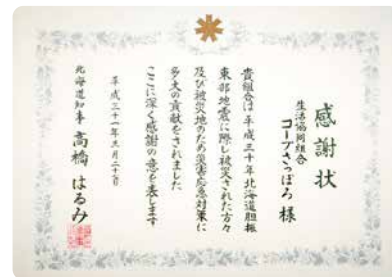 感謝状
生活協同組合
コープさっぽろ 様
貴組合は平成三十年北海道胆振
東部地震に際し被災された方々
及び被災地のため災害応急対策に
多大の貢献をされました
ここに深く感謝の意を表します
平成三十一年三月二十日
北海道知事 高橋はるみ